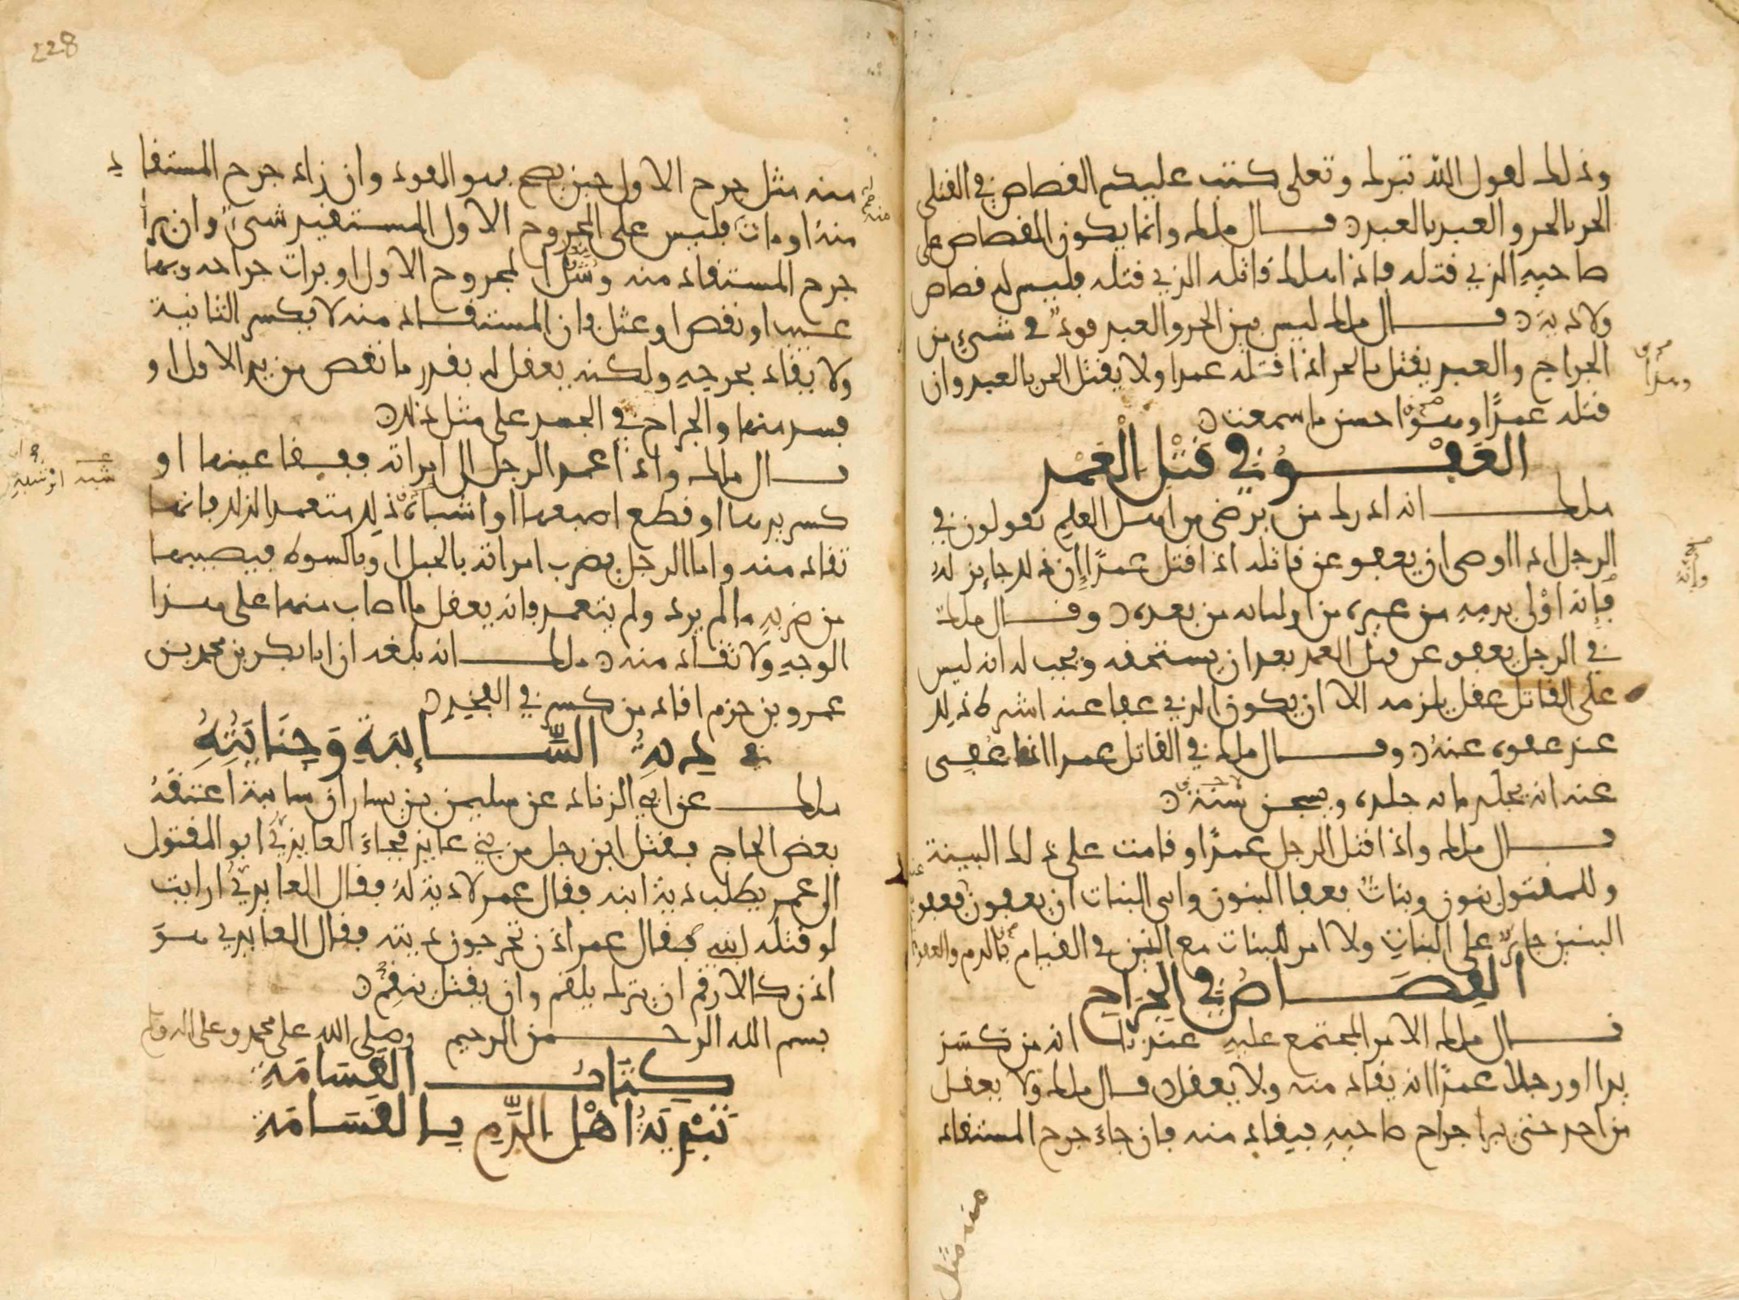 وذلك لقول الله تبرك وتعلى كتب عليكم القصاص في القتلى
الحر بالحر والعبد بالعبد قال ملك وانما يكون القصاص على
صاحبه الذي قتله فاذا هلك قاتله الذي قتله فليس له قصاص
ولا دية قال ملك ليس بين الحر والعبد قود في شيء من
الجراح والعبد يقتل بالحر اذا قتله عمدا ولا يقتل الحر بالعبد وان
قتله عمدًا وهوَ احسن ما سمعت
العَفْوُ في قَتْلِ الْعَمْد
ملك انه ادرك من يرضى من اهل العلم يقولون في
الرجل اذا اوصى ان يعفو عن قاتله اذا قتل عمدًا إن ذلك جايز له
فإنه أوْلى بدمه من غيره من اوليائه من بعده وقال ملك
في الرجل يعفو عن قتل العمد بعد ان يستحقه ويجب له انه ليس
على القاتل عقل يلزمه الا ان يكون الذي عفا عنه اشترط ذلك
عند عفوه عنه وقال ملك في القاتل عمدا اذا عُفِي
عنه انه يجلد مائة جلدة ويسجن سَنَة
قال ملك واذا قتل الرجل عمدًا وقامت على ذلك البينة
وللمقتول بنون وبناتٌ فعفا البنون وابى البنات ان يعفون فعفو
البنين جايز على البنات ولا امر للبنات مع البنين في القيام بالدم والعفو
القِصَاصُ في الجِرَاحِ
قال ملك الامر المجتمع عليه عندنا انه من كسر
يدا او رجلا عمدًا انه يقاد منه ولا يعقل قال ملك ولا يعقل
من احد حتى يبرا جراح صاحبه فيقاد منه فان جاء جرح المستقاد
منه مثل
228
منه مثل جرح الاول حين يصح فهو القود وان زاد جرح المستقاد
منهُ او مات فليس على المجروح الاول المستقيد شيءٌ وان برأ
جرح المستقاد منه وشُلّ المجروح الاول او برات جراحه وبها
عيب او نقص او عثل فان المستقاد منه لا يكسر الثانية
ولا يقاد بجرحه ولكنه يعقل له بقدر ما نقص من يد الاول او
فسد منها والجراح في الجسد على مثل ذلك
قال ملك واذا عمد الرجل الى امراته ففقا عينها او
كسر يدها او قطع اصبعها او اشباهَ ذلك متعمدا لذلك فانها
تقاد منه واما الرجل يضرب امراته بالحبل او بالسوط فيصيبها
من ضربه ما لم يرد ولم يتعمد فانه يعقل ما اصاب منها على هذا
الوجه ولا تقاد منه ملك انه بلغه ان ابا بكر بن محمد بن
عمرو بن حزم اقاد من كسر في الفخذ
في ديةُ السَّايبَةِ وَجِنَايَتُهُ
ملك عن ابي الزناد عن سليمن بن يسار ان سايبة اعتقهُ
بعض الحاج فقتل ابن رجل من بني عايذ فجاء العايذي ابو المقتول
الى عمر يطلب دية ابنه فقال عمر لا دية لهُ فقال العايذي ارايت
لو قتله ابني فقال عمر اذن تخرجون ديته فقال العايذي هوَ
اذن كالارقم ان يترك يلقم وان يقتل ينقِمْ
بسم الله الرحمن الرحيم وصلى الله على محمد وعلى اله وسلم
كتاب القَسَامَة
تَبْدِيَةُ اهْلِ الدَّمِ في القَسَامَة